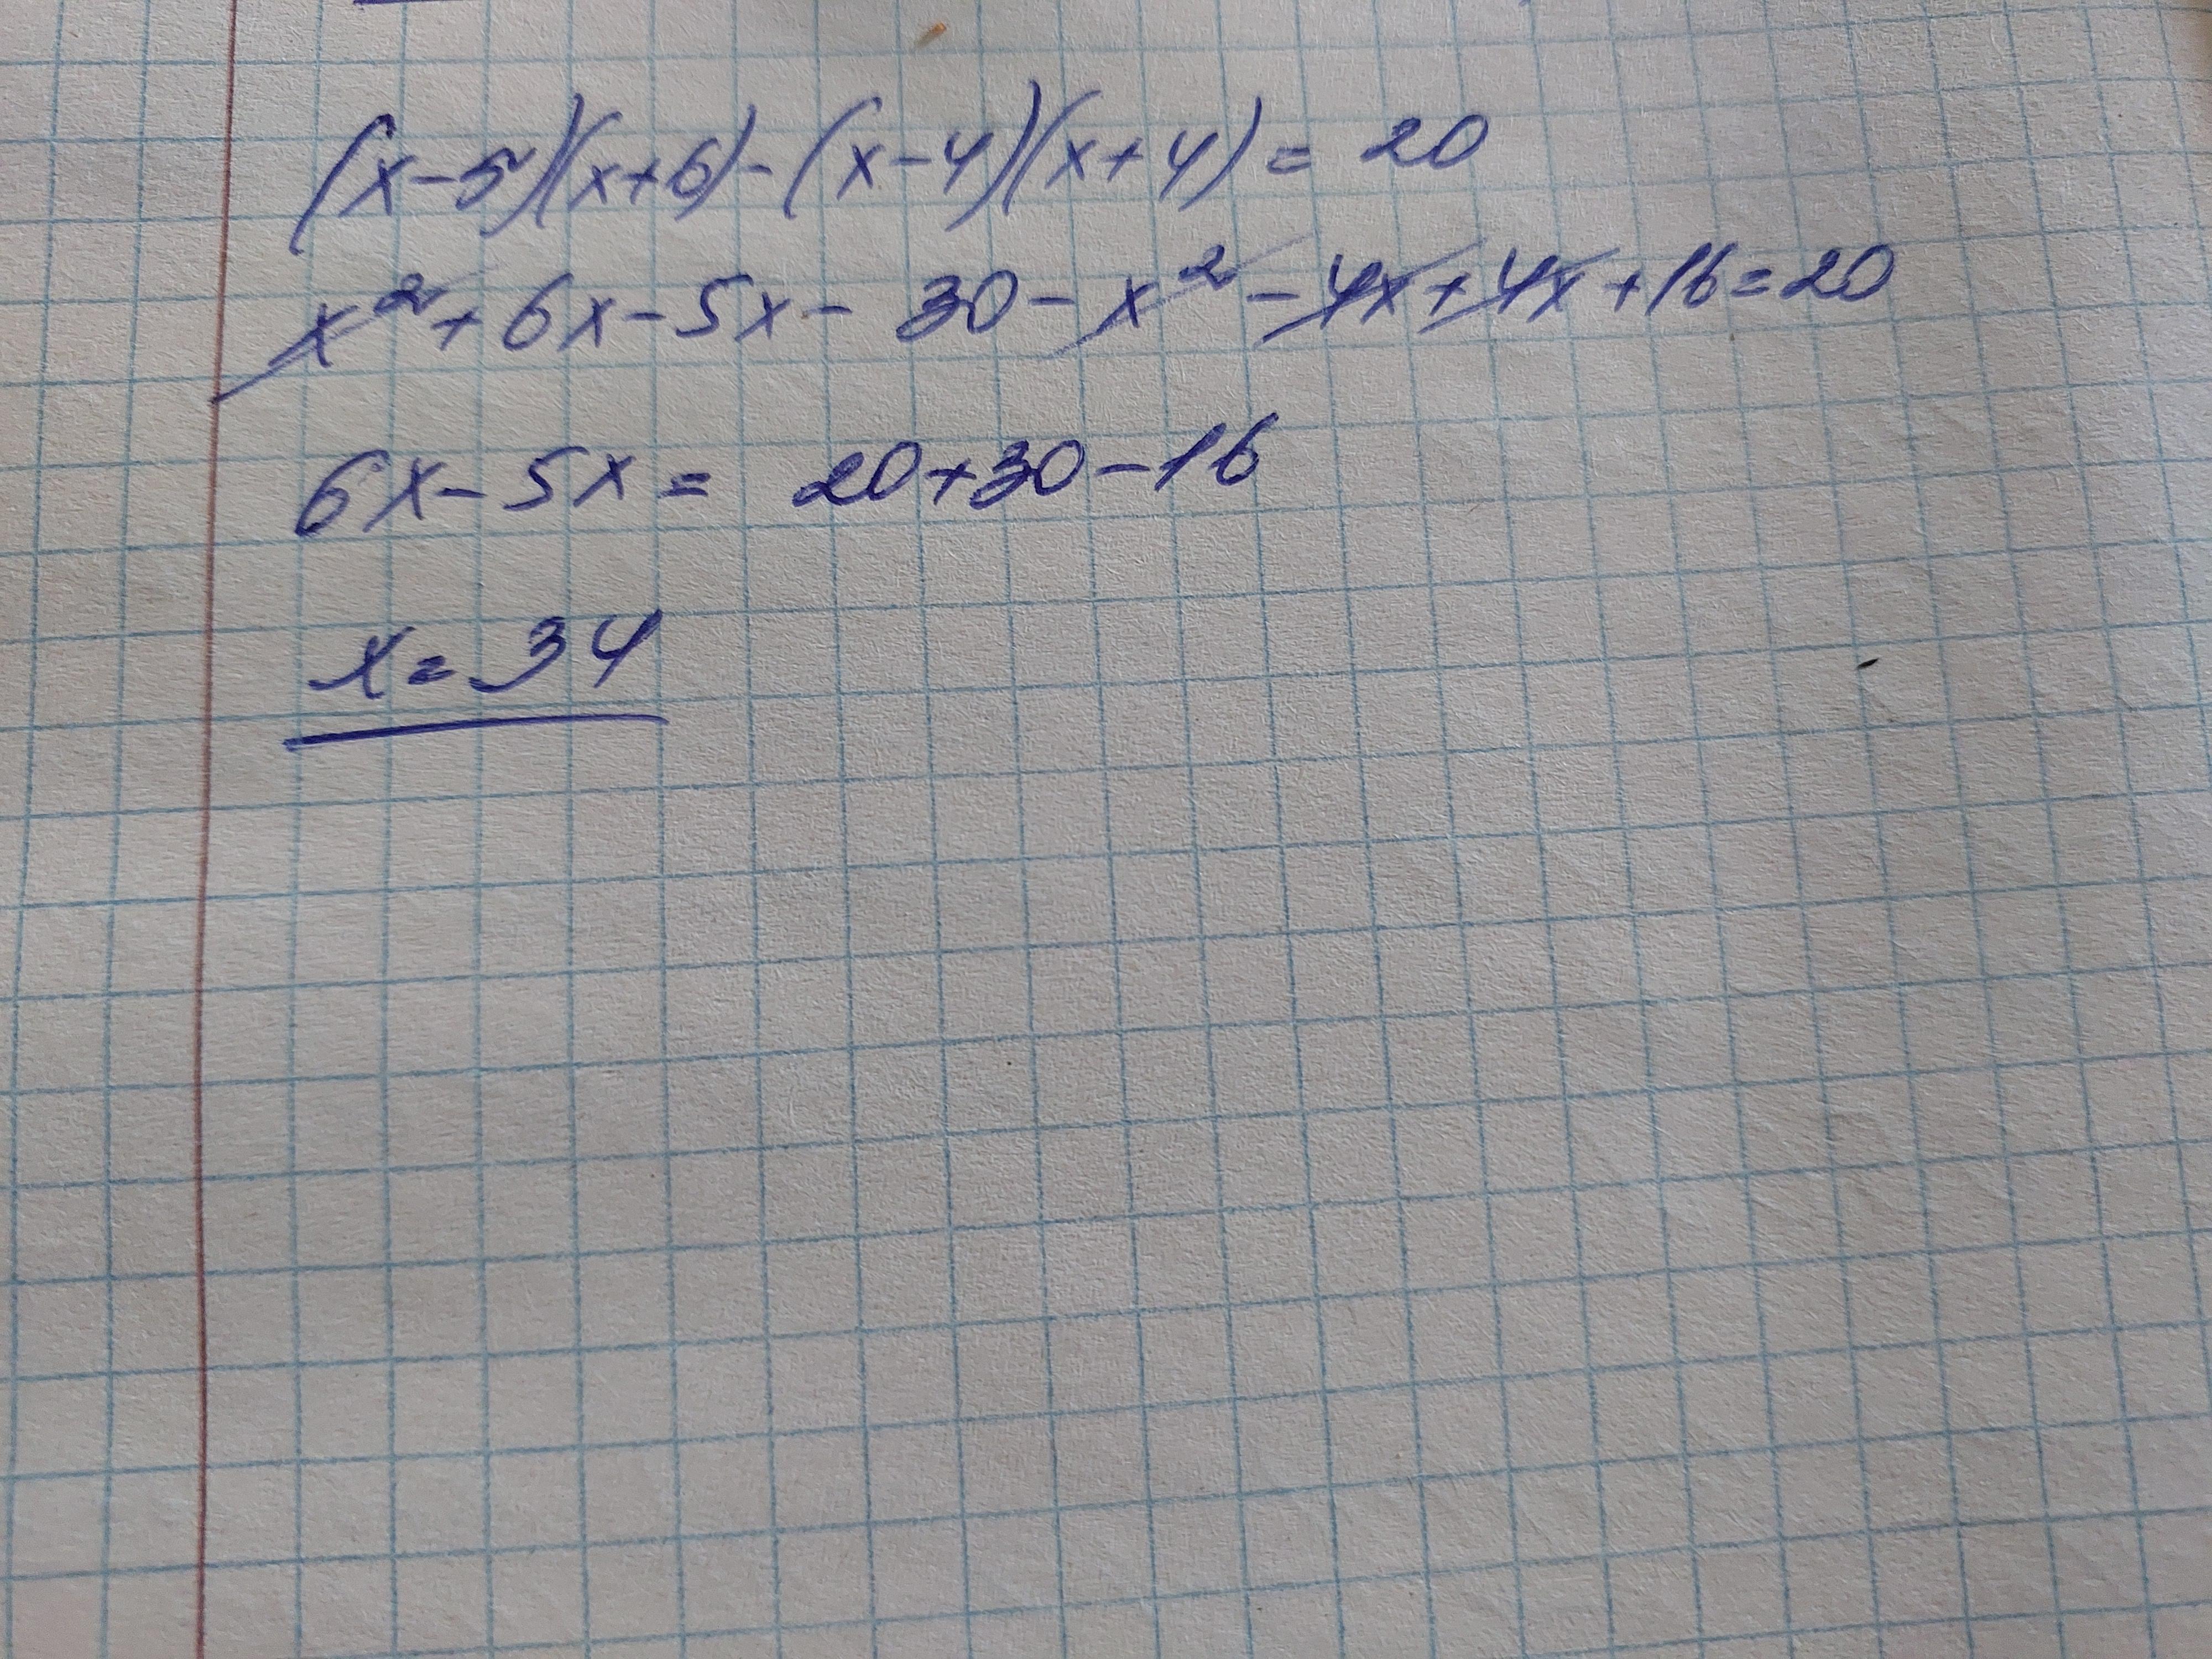 (x-5)(x+6)-(x-4)(x+4)= 20
x²+6x-5x- 30-x²-4x+4x+16=20
6x-5x= 20+30-16
x=34